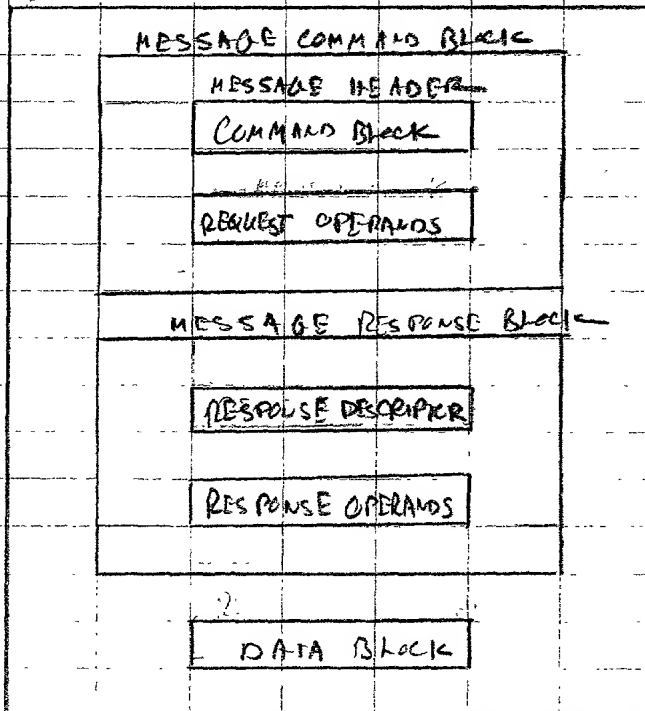 MESSAGE COMMAND BLOCK
MESSAGE HEADER
COMMAND BLOCK
REQUEST OPERANDS
MESSAGE RESPONSE BLOCK
RESPONSE DESCRIPTER
RESPONSE OPERANDS
DATA BLOCK